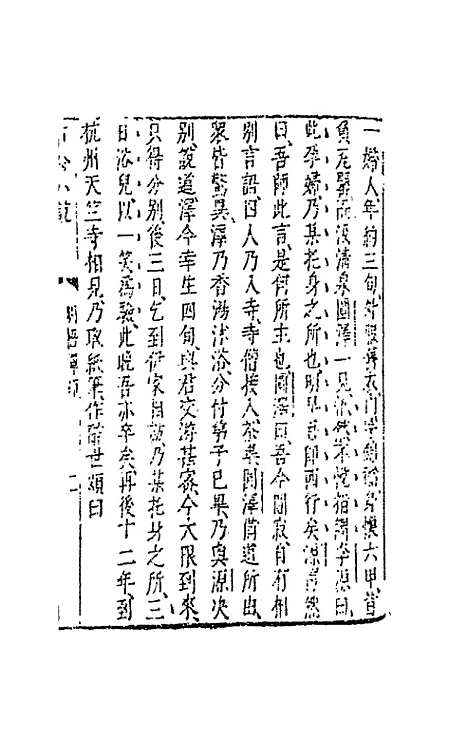 一婦人年約三旬外服舊衣身懷六甲背
負瓦罌而汲清泉圓澤一見愀然不悅指謂李源曰
此孕婦乃某托身之所也明早吾即西行矣源愕然
曰吾師此言是何所主也圓澤曰吾今圓寂自有相
別言語四人乃入寺寺僧接入茶畢圓澤備道所由
衆皆驚異澤乃香湯沐浴分付弟子已畢乃與源决
别說道澤今幸生四旬與君交游甚宻今大限到來
只得分别後三日乞到伊家相訪乃某托身之所三
日浴兒以一笑爲驗此晚吾亦卒矣再後十二年到
杭州天竺寺相見乃取紙筆作辭世頌曰
古今小說 明悟禪師 二